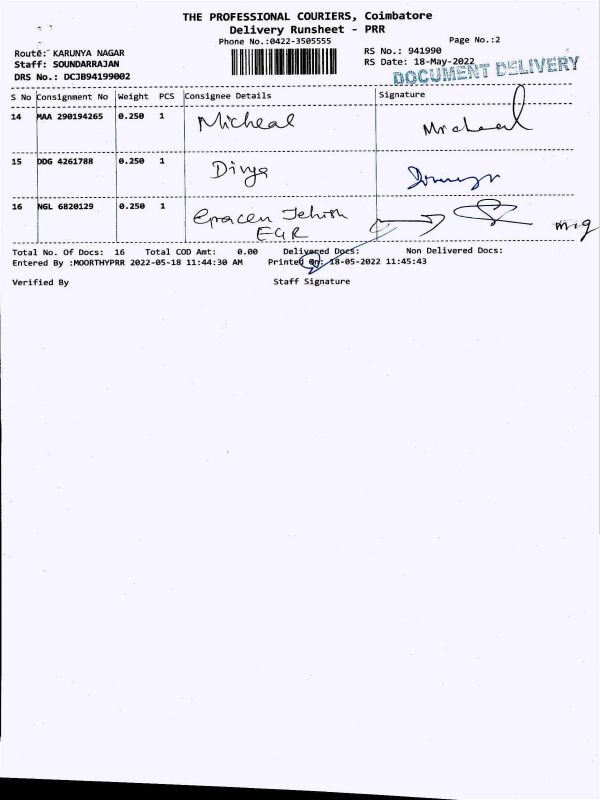 THE PROFESSIONAL COURIERS, Coimbatore
Delivery Runsheet - PRR
Phone No.:0422-3505555
Page No.:2
Route: KARUNYA NAGAR
RS No.: 941990
Staff: SOUNDARRAJAN
RS Date: 18-May-2022
DRS No.: DCJB94199002
DOCUMENT DELIVERY
S No Consignment No Weight PCS Consignee Details Signature
14 MAA 290194265 0.250 1 Micheal Micheal
15 DDG 4261788 0.250 1 Divya
16 NGL 6820129 0.250 1
EGR
Total No. Of Docs: 16 Total COD Amt: 0.00 Delivered Docs: Non Delivered Docs:
Entered By :MOORTHYPRR 2022-05-18 11:44:30 AM Printed On: 18-05-2022 11:45:43
Verified By Staff Signature